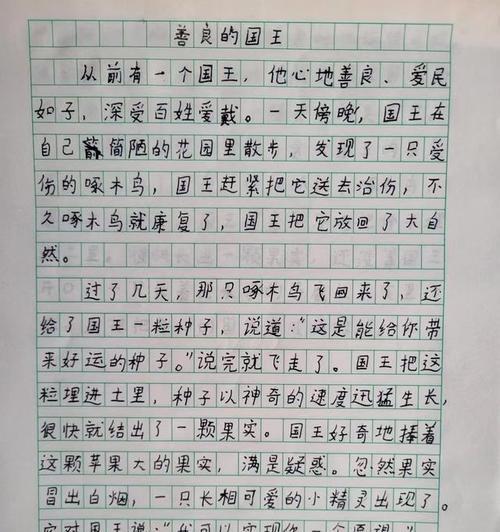 善良的国王
从前有一个国王，他心地善良、爱民
如子，深受百姓爱戴。一天傍晚，国王在
自己简陋的花园里散步，发现了一只受
伤的啄木鸟，国王赶紧把它送去治伤，不
久啄木鸟就康复了，国王把它放回了大自
然。
过了几天，那只啄木鸟飞回来了，还
给了国王一粒种子，说道：“这是能给你带
来好运的种子。”说完就飞走了。国王把这
粒埋进土里，种子以神奇的速度迅猛生长，
很快就结出了一颗果实。国王好奇地捧着
这颗苹果大的果实，满是疑惑。忽然果实
冒出白烟，一只长相可爱的小精灵出现了。
它对国王说：“我可以实现你一个愿